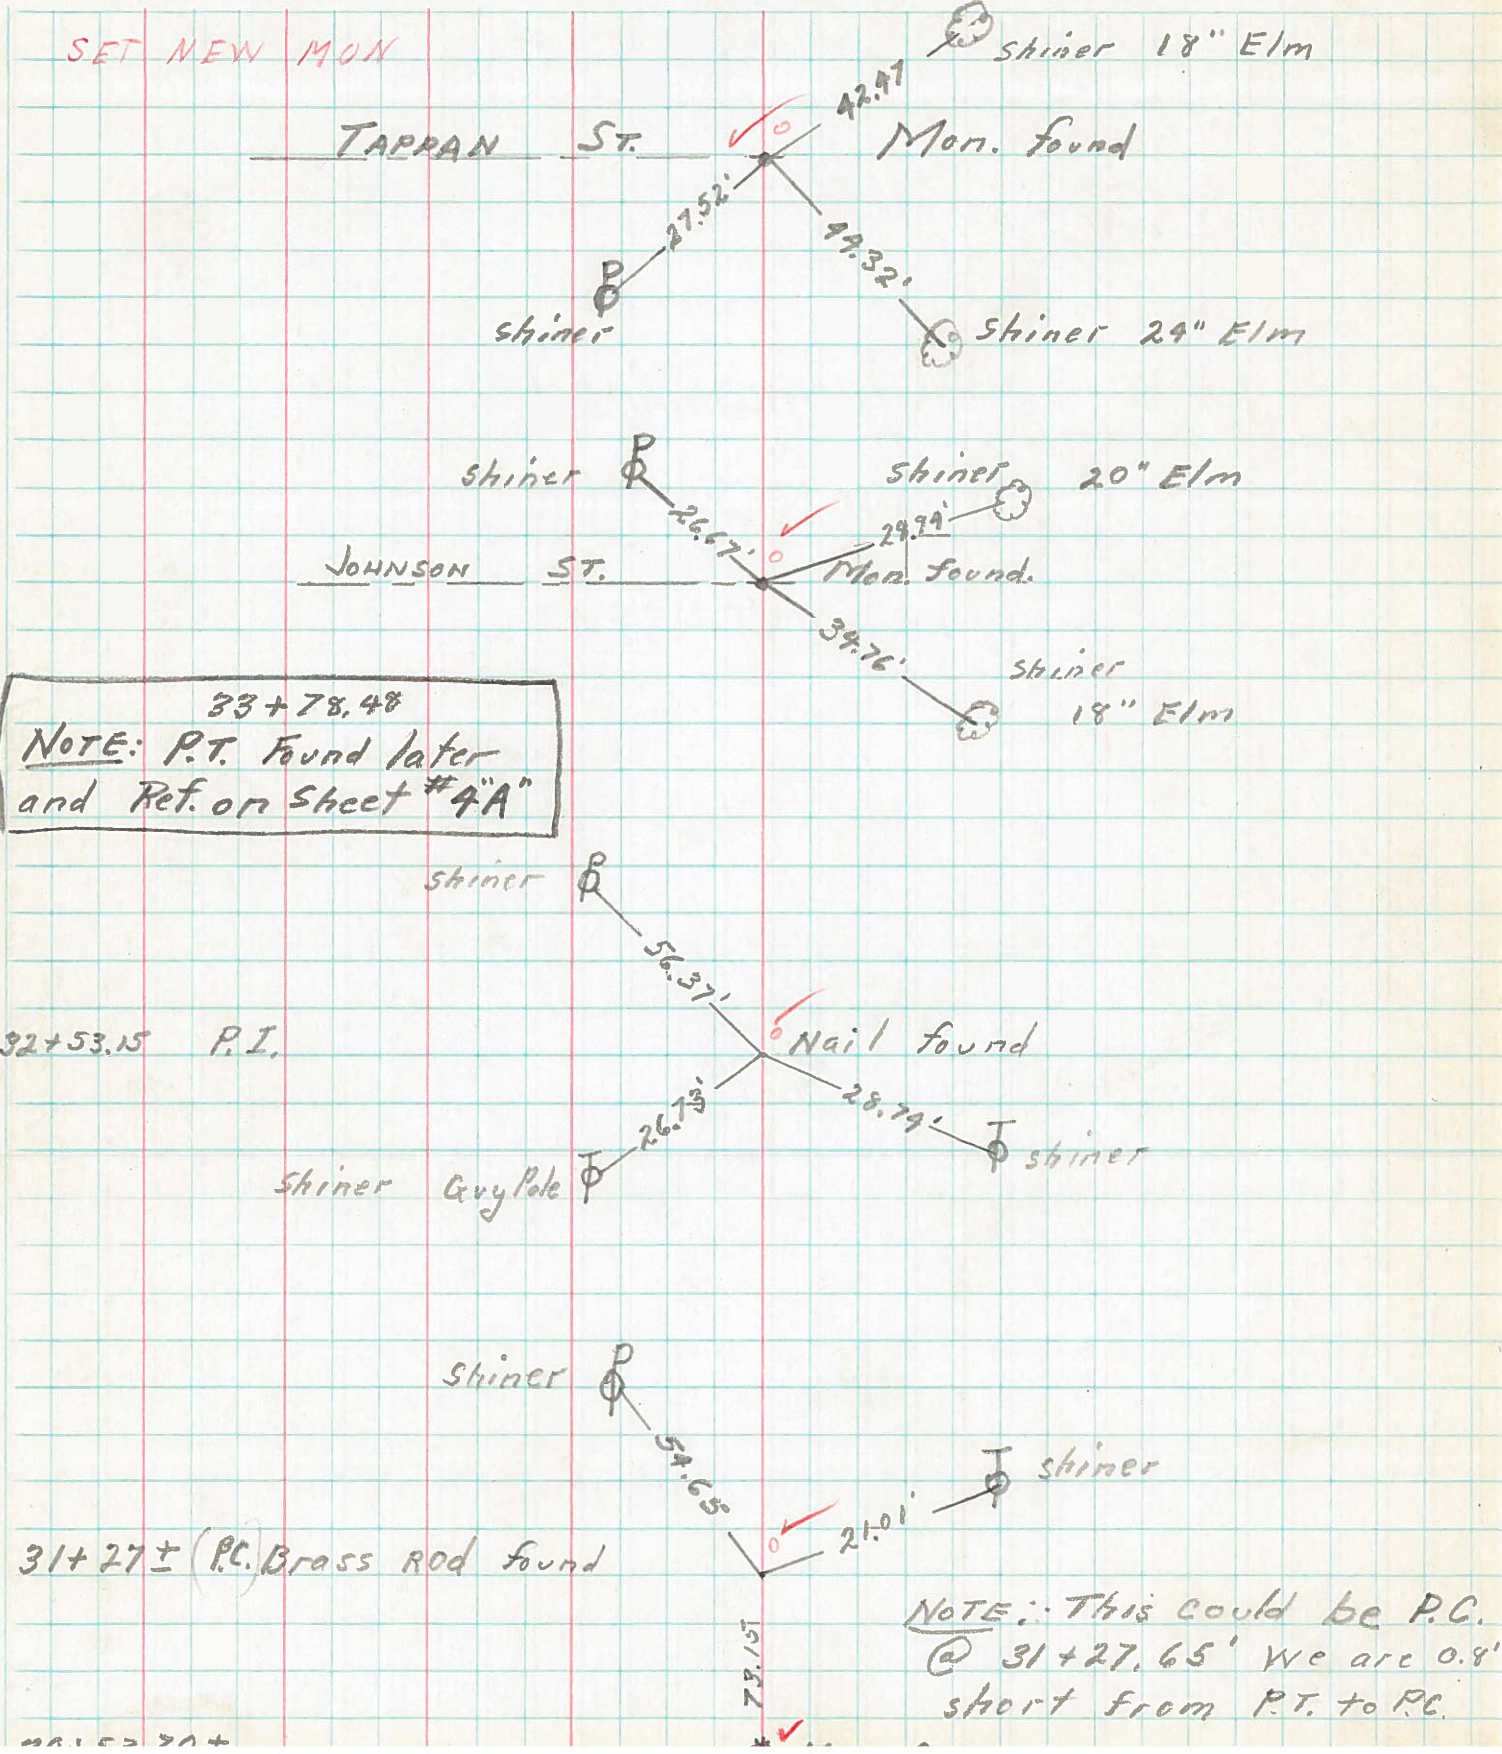 SET NEW MON
Shiner 18" Elm
42.47
TAPPAN ST.
Mon. found
27.52'
44.32'
shiner
Shiner 24" Elm
shiner
Shiner 20" Elm
26.67'
JOHNSON ST.
Mon. found.
34.76'
shiner
18" Elm
33+78.48
NOTE: P.T. Found later
and Ref. on Sheet #4"A"
shiner
56.37'
32+53.15 P.I.
Nail found
26.73'
28.74'
Shiner Guy Pole
shiner
Shiner
54.65
shiner
21.01'
31+27± (P.C.) Brass Rod found
NOTE: This could be P.C.
@ 31+27.65' We are 0.8'
short from P.T. to P.C.